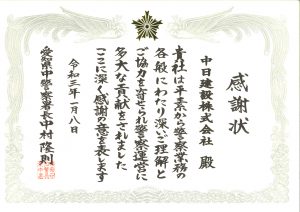 感謝状
中日建設株式会社 殿
貴社は平素から警察業務の
各般にわたり深いご理解と
ご協力を寄せられ警察運営に
多大な貢献をされました
ここに深く感謝の意を表します
令和三年一月八日
愛知県中警察署長 中村隆則